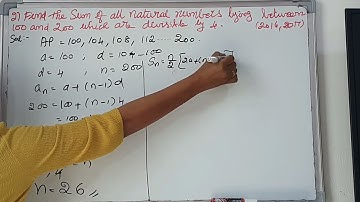 2) Find the Sum of all natural numbers lying between
100 and 200 which are divisible by 4. (2016, 2017)
Sol:- AP = 100, 104, 108, 112 ..... 200.
a = 100, d = 104 - 100
d = 4, n = 200
Sn = n/2 [2a+(n-
an = a + (n-1) d
200 = 100 + (n-1) 4
= 100
4
n = 26 ,,